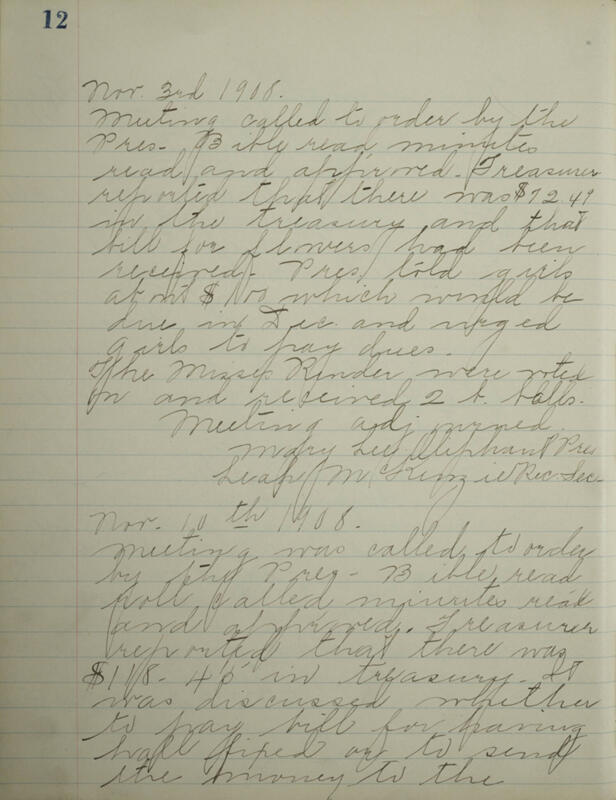 12
Nov. 3rd 1908.
Meeting called to order by the
Pres- Bible read minutes
read and approved. Treasurer
reported that there was $72.49
in the treasury and that
bill for flowers had been
received. Pres told girls
about $100 which would be
due in Dec. and urged
girls to pay dues.
The Misses Kinder were voted
on and received 2 b. balls.
Meeting adjourned.
Mary Lee Pres
Leah McKenzie Rec. Sec.
Nov. 10th 1908.
Meeting was called to order
by the Pres- Bible read
roll called minutes read
and approved. Treasurer
reported that there was
$118.45 in treasury. It
was discussed whether
to pay bill for having
hall fixed or to send
the money to the